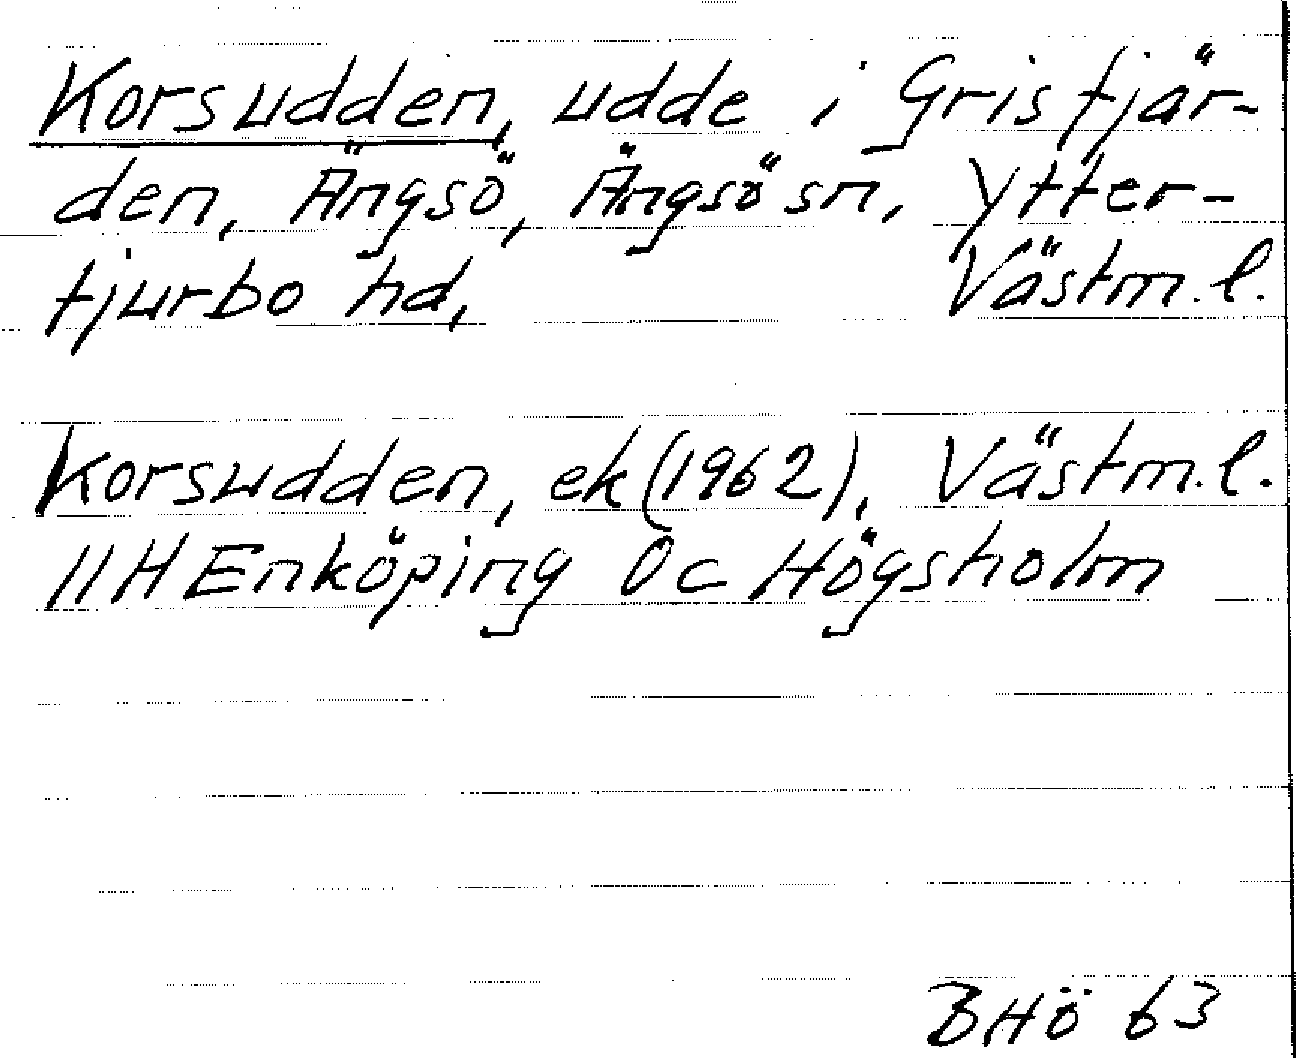 Korsudden, udde i Grisfjär-
den, Ängsö, Ängsö sn, Ytter-
tjurbo hd, Västm. l.
Korsudden, ek (1962), Västm. l.
11H Enköping 0c Högsholm
BHö 63